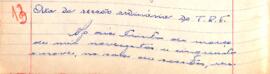 13
Ata da sessão ordinária do T.R.E.
Aos trinta de março
de mil novecentos e cinquenta
e nove, na sala das sessões, reu-